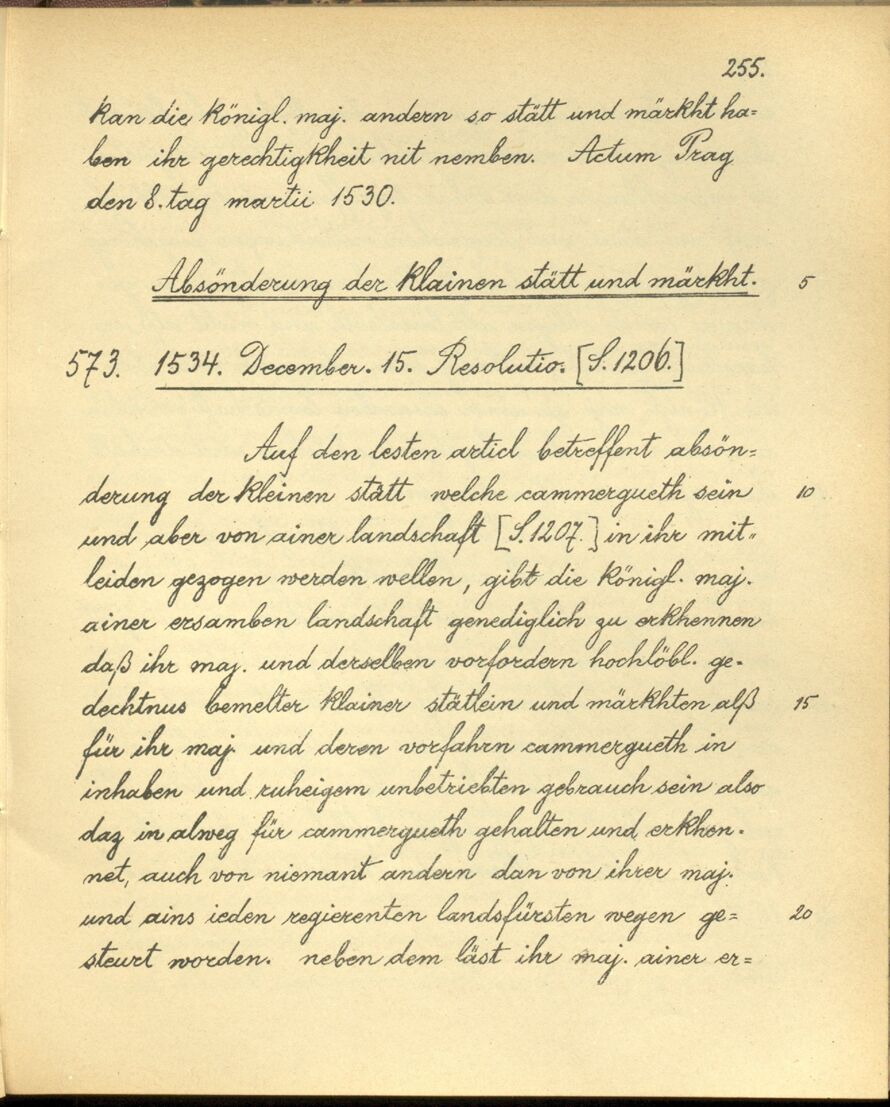 255.
kan die königl. maj. andern so stätt und märkht ha=
ben ihr gerechtigkheit nit nemben. Actum Prag
den 8. tag martii 1530.
Absönderung der klainen stätt und märkht. 5
573. 1534. December. 15. Resolutio. [S. 1206.]
Auf den lesten articl betreffent absön=
derung der kleinen stätt welche cammergueth sein 10
und aber von ainer landschaft [S. 1207.] in ihr mit=
leiden gezogen werden wellen, gibt die königl. maj.
ainer ersamben landschaft genediglich zu erkhennen
daß ihr maj. und derselben vorfordern hochlöbl. ge=
dechtnus bemelter klainer stätlein und märkhten alß 15
für ihr maj. und deren vorfahrn cammergueth in
inhaben und ruheigem unbetriebten gebrauch sein also
daz in alweg für cammergueth gehalten und erkhen=
net, auch von niemant andern dan von ihrer maj.
und ains ieden regierenten landsfürsten wegen ge= 20
steurt worden. neben dem läst ihr maj. ainer er=